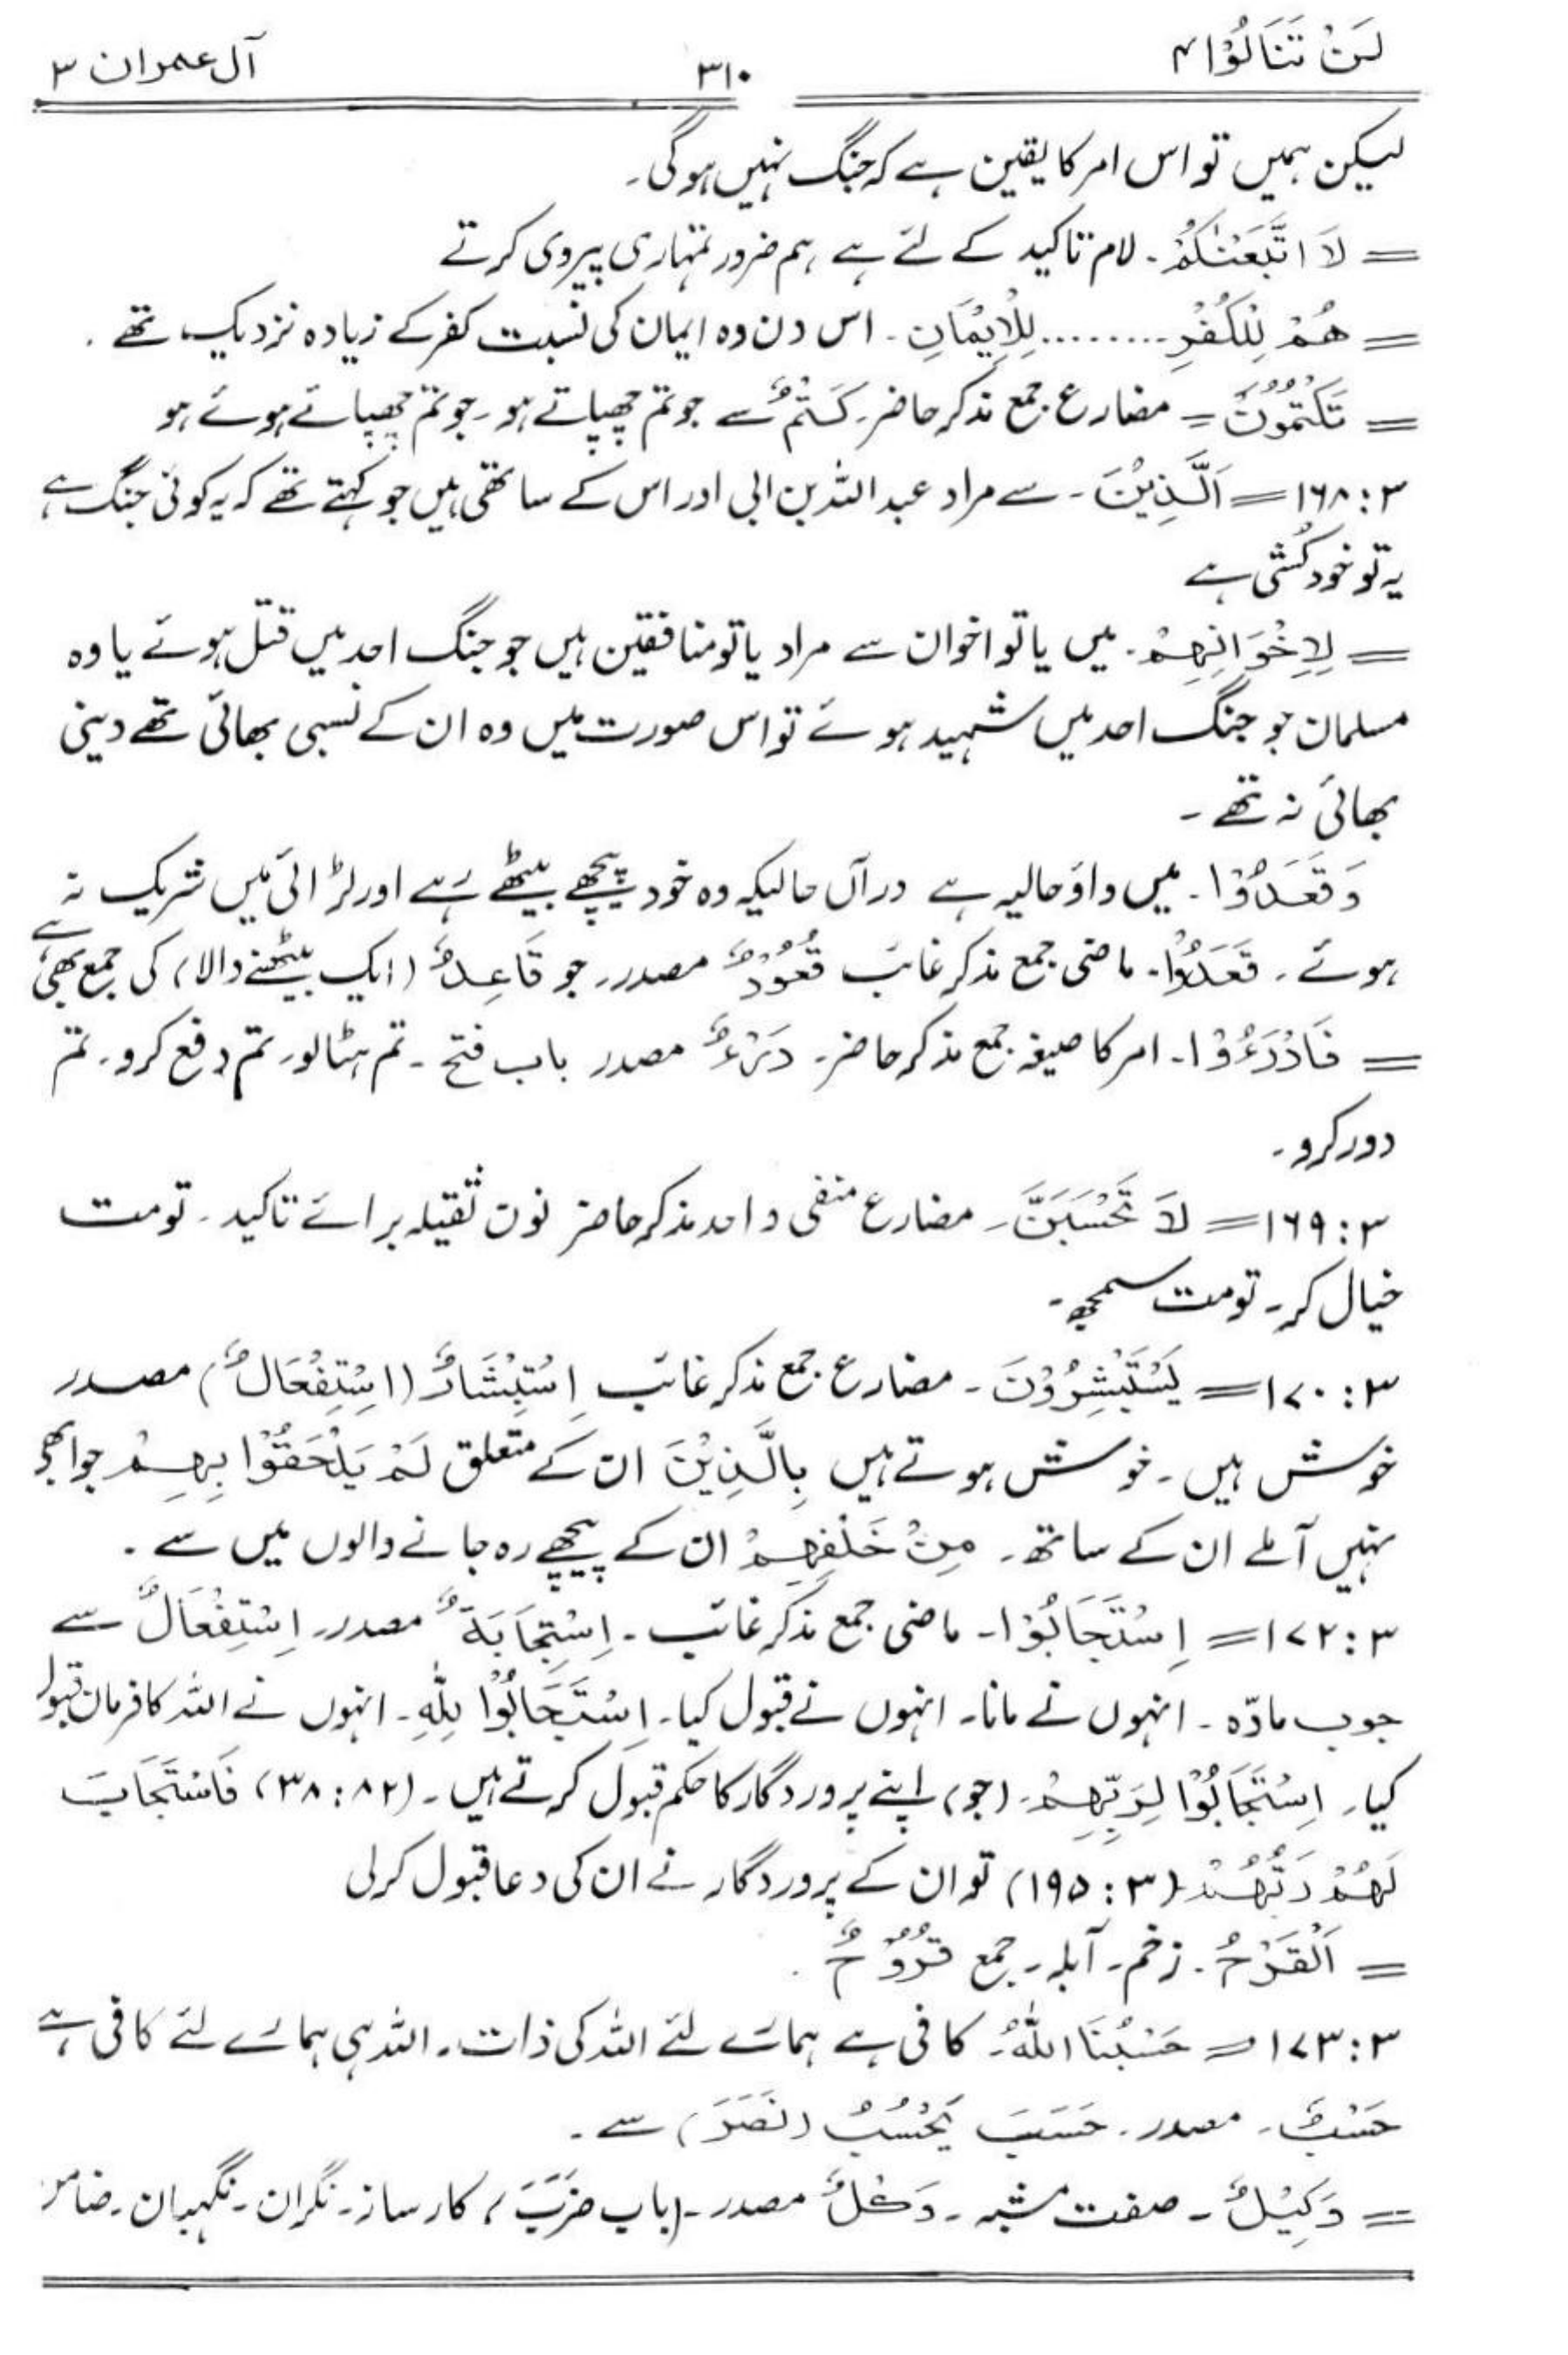 لَنْ تَنَالُوْا ۴ ۳۱۰ آل عمران ۳
لیکن ہمیں تو اس امر کا یقین ہے کہ جنگ نہیں ہوگی۔
= لَا اتَّبَعْنٰكُمْ۔ لام تاکید کے لئے ہے ہم ضرور تمہاری پیروی کرتے
= هُمْ لِلْكُفْرِ........لِلْاِيْمَانِ۔ اس دن وہ ایمان کی نسبت کفر کے زیادہ نزدیک تھے۔
= تَكْتُمُوْنَ = مضارع جمع مذکر حاضر۔ كَتْمٌ سے جو تم چھپاتے ہو۔ جو تم چھپائے ہوئے ہو
۳:۱۶۸ = اَلَّذِيْنَ۔ سے مراد عبد اللہ بن ابی اور اس کے ساتھی ہیں جو کہتے تھے کہ یہ کوئی جنگ ہے
یہ تو خود کُشی ہے
= لِاِخْوَانِهِمْ۔ میں یا تو اخوان سے مراد یا تو منافقین ہیں جو جنگ احد میں قتل ہوئے یا وہ
مسلمان جو جنگ احد میں شہید ہوئے تو اس صورت میں وہ ان کے نسبی بھائی تھے دینی
بھائی نہ تھے۔
وَقَعَدُوْا۔ میں واؤ حالیہ ہے درآں حالیکہ وہ خود پیچھے بیٹھے رہے اور لڑائی میں شریک نہ
ہوئے۔ قَعَدُوْا۔ ماضی جمع مذکر غائب قُعُوْدٌ مصدر۔ جو قَاعِدٌ (ایک بیٹھنے والا) کی جمع بھی ہے
= فَادْرَءُوْا۔ امر کا صیغہ جمع مذکر حاضر۔ دَرْءٌ مصدر باب فتح۔ تم ہٹالو۔ تم دفع کرو۔ تم
دور کرو۔
۳:۱۶۹ = لَا تَحْسَبَنَّ۔ مضارع منفی واحد مذکر حاضر نون ثقیلہ برائے تاکید۔ تو مت
خیال کر۔ تو مت سمجھ۔
۳:۱۷۰ = يَسْتَبْشِرُوْنَ۔ مضارع جمع مذکر غائب اِسْتِبْشَارٌ (اِسْتِفْعَالٌ) مصدر
خوش ہیں۔ خوش ہوتے ہیں بِالَّذِيْنَ ان کے متعلق لَمْ يَلْحَقُوْا بِهِمْ جو ابھی
نہیں آملے ان کے ساتھ۔ مِنْ خَلْفِهِمْ ان کے پیچھے رہ جانے والوں میں سے۔
۳:۱۷۲ = اِسْتَجَابُوْا۔ ماضی جمع مذکر غائب۔ اِسْتِجَابَةٌ مصدر۔ اِسْتِفْعَالٌ سے
جوب مادّہ۔ انہوں نے مانا۔ انہوں نے قبول کیا۔ اِسْتَجَابُوْا لِلّٰهِ۔ انہوں نے اللہ کا فرمان قبول
کیا۔ اِسْتَجَابُوْا لِرَبِّهِمْ۔ (جو) اپنے پروردگار کا حکم قبول کرتے ہیں۔ (۳۸:۸۲) فَاسْتَجَابَ
لَهُمْ رَبُّهُمْ (۳:۱۹۵) تو ان کے پروردگار نے ان کی دعا قبول کرلی
= اَلْقَرْحُ۔ زخم۔ آبلہ۔ جمع قُرُوْحٌ۔
۳:۱۷۳ = حَسْبُنَا اللّٰهُ۔ کافی ہے ہمارے لئے اللہ کی ذات۔ اللہ ہی ہمارے لئے کافی ہے
حَسْبٌ۔ مصدر۔ حَسَبَ يَحْسُبُ (نَصَرَ) سے۔
= وَكِيْلٌ۔ صفت مشبہ۔ وَكْلٌ مصدر۔ (باب ضَرَبَ) کارساز۔ نگران۔ نگہبان۔ ضامن